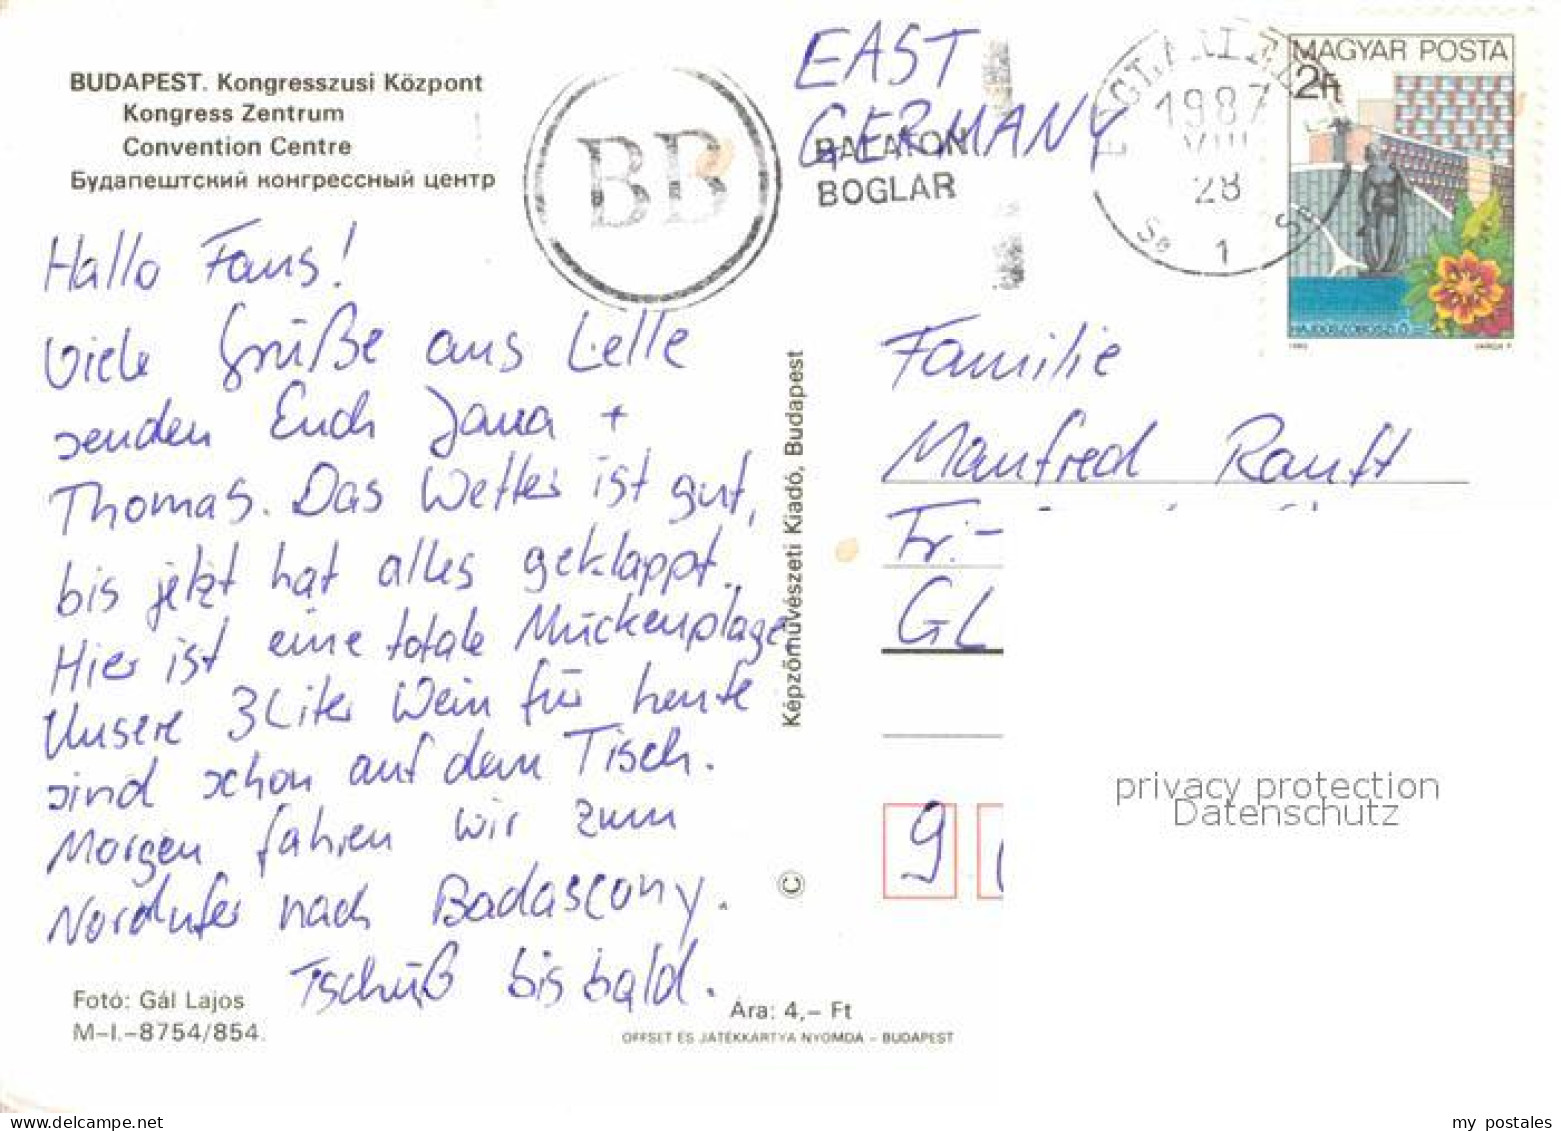 BUDAPEST. Kongresszusi Központ
Kongress Zentrum
Convention Centre
Будапештский конгрессный центр
BB
BALATON
BOGLAR
EAST
GERMANY
1987
VIII
28
Se 1
MAGYAR POSTA
2Ft
HAJDÚSZOBOSZLÓ
VARGA P.
Hallo Fans!
Viele Grüße aus Lelle
senden Euch Jana +
Thomas. Das Wetter ist gut,
bis jetzt hat alles geklappt.
Hier ist eine totale Mückenplage
Unsere 3 Liter Wein für heute
sind schon auf dem Tisch.
Morgen fahren wir zum
Nordufer nach Badascony.
Tschüß bis bald.
Képzőművészeti Kiadó, Budapest
©
Familie
Manfred Ranft
Fr.-
GL
9
privacy protection
Datenschutz
Fotó: Gál Lajos
M-I.-8754/854.
Ára: 4,- Ft
OFFSET ÉS JÁTÉKKÁRTYA NYOMDA - BUDAPEST
my postales